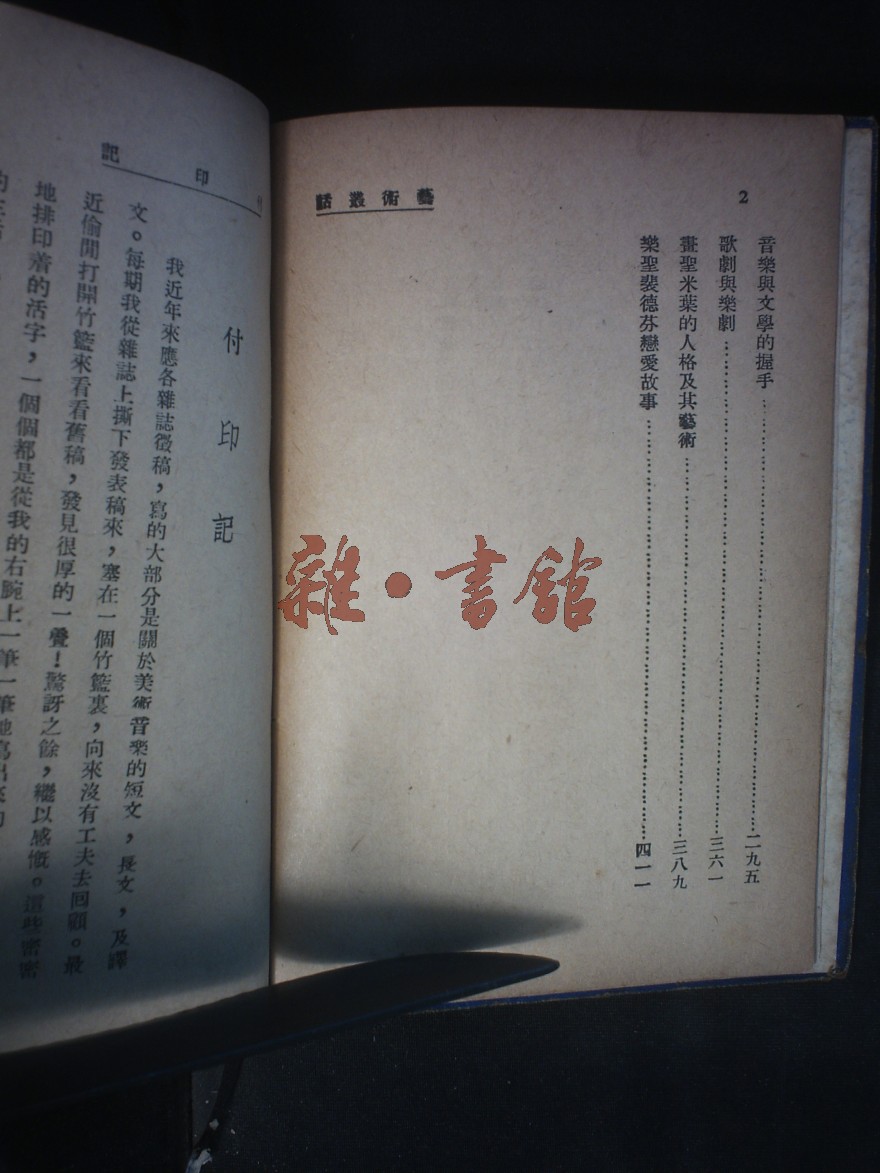 2
藝術叢話
音樂與文學的握手……二九五
歌劇與樂劇……三六一
畫聖米葉的人格及其藝術……三八九
樂聖裴德芬戀愛故事……四一一
雜·書館
付印記
付印記
我近年來應各雜誌徵稿，寫的大部分是關於美術音樂的短文，長文，及譯
文。每期我從雜誌上撕下發表稿來，塞在一個竹籃裏，向來沒有工夫去回顧。最
近偷閒打開竹籃來看看舊稿，發見很厚的一疊！驚訝之餘，繼以感慨。這些密密
地排印着的活字，一個個都是從我的右腕上一筆一筆地寫出來的